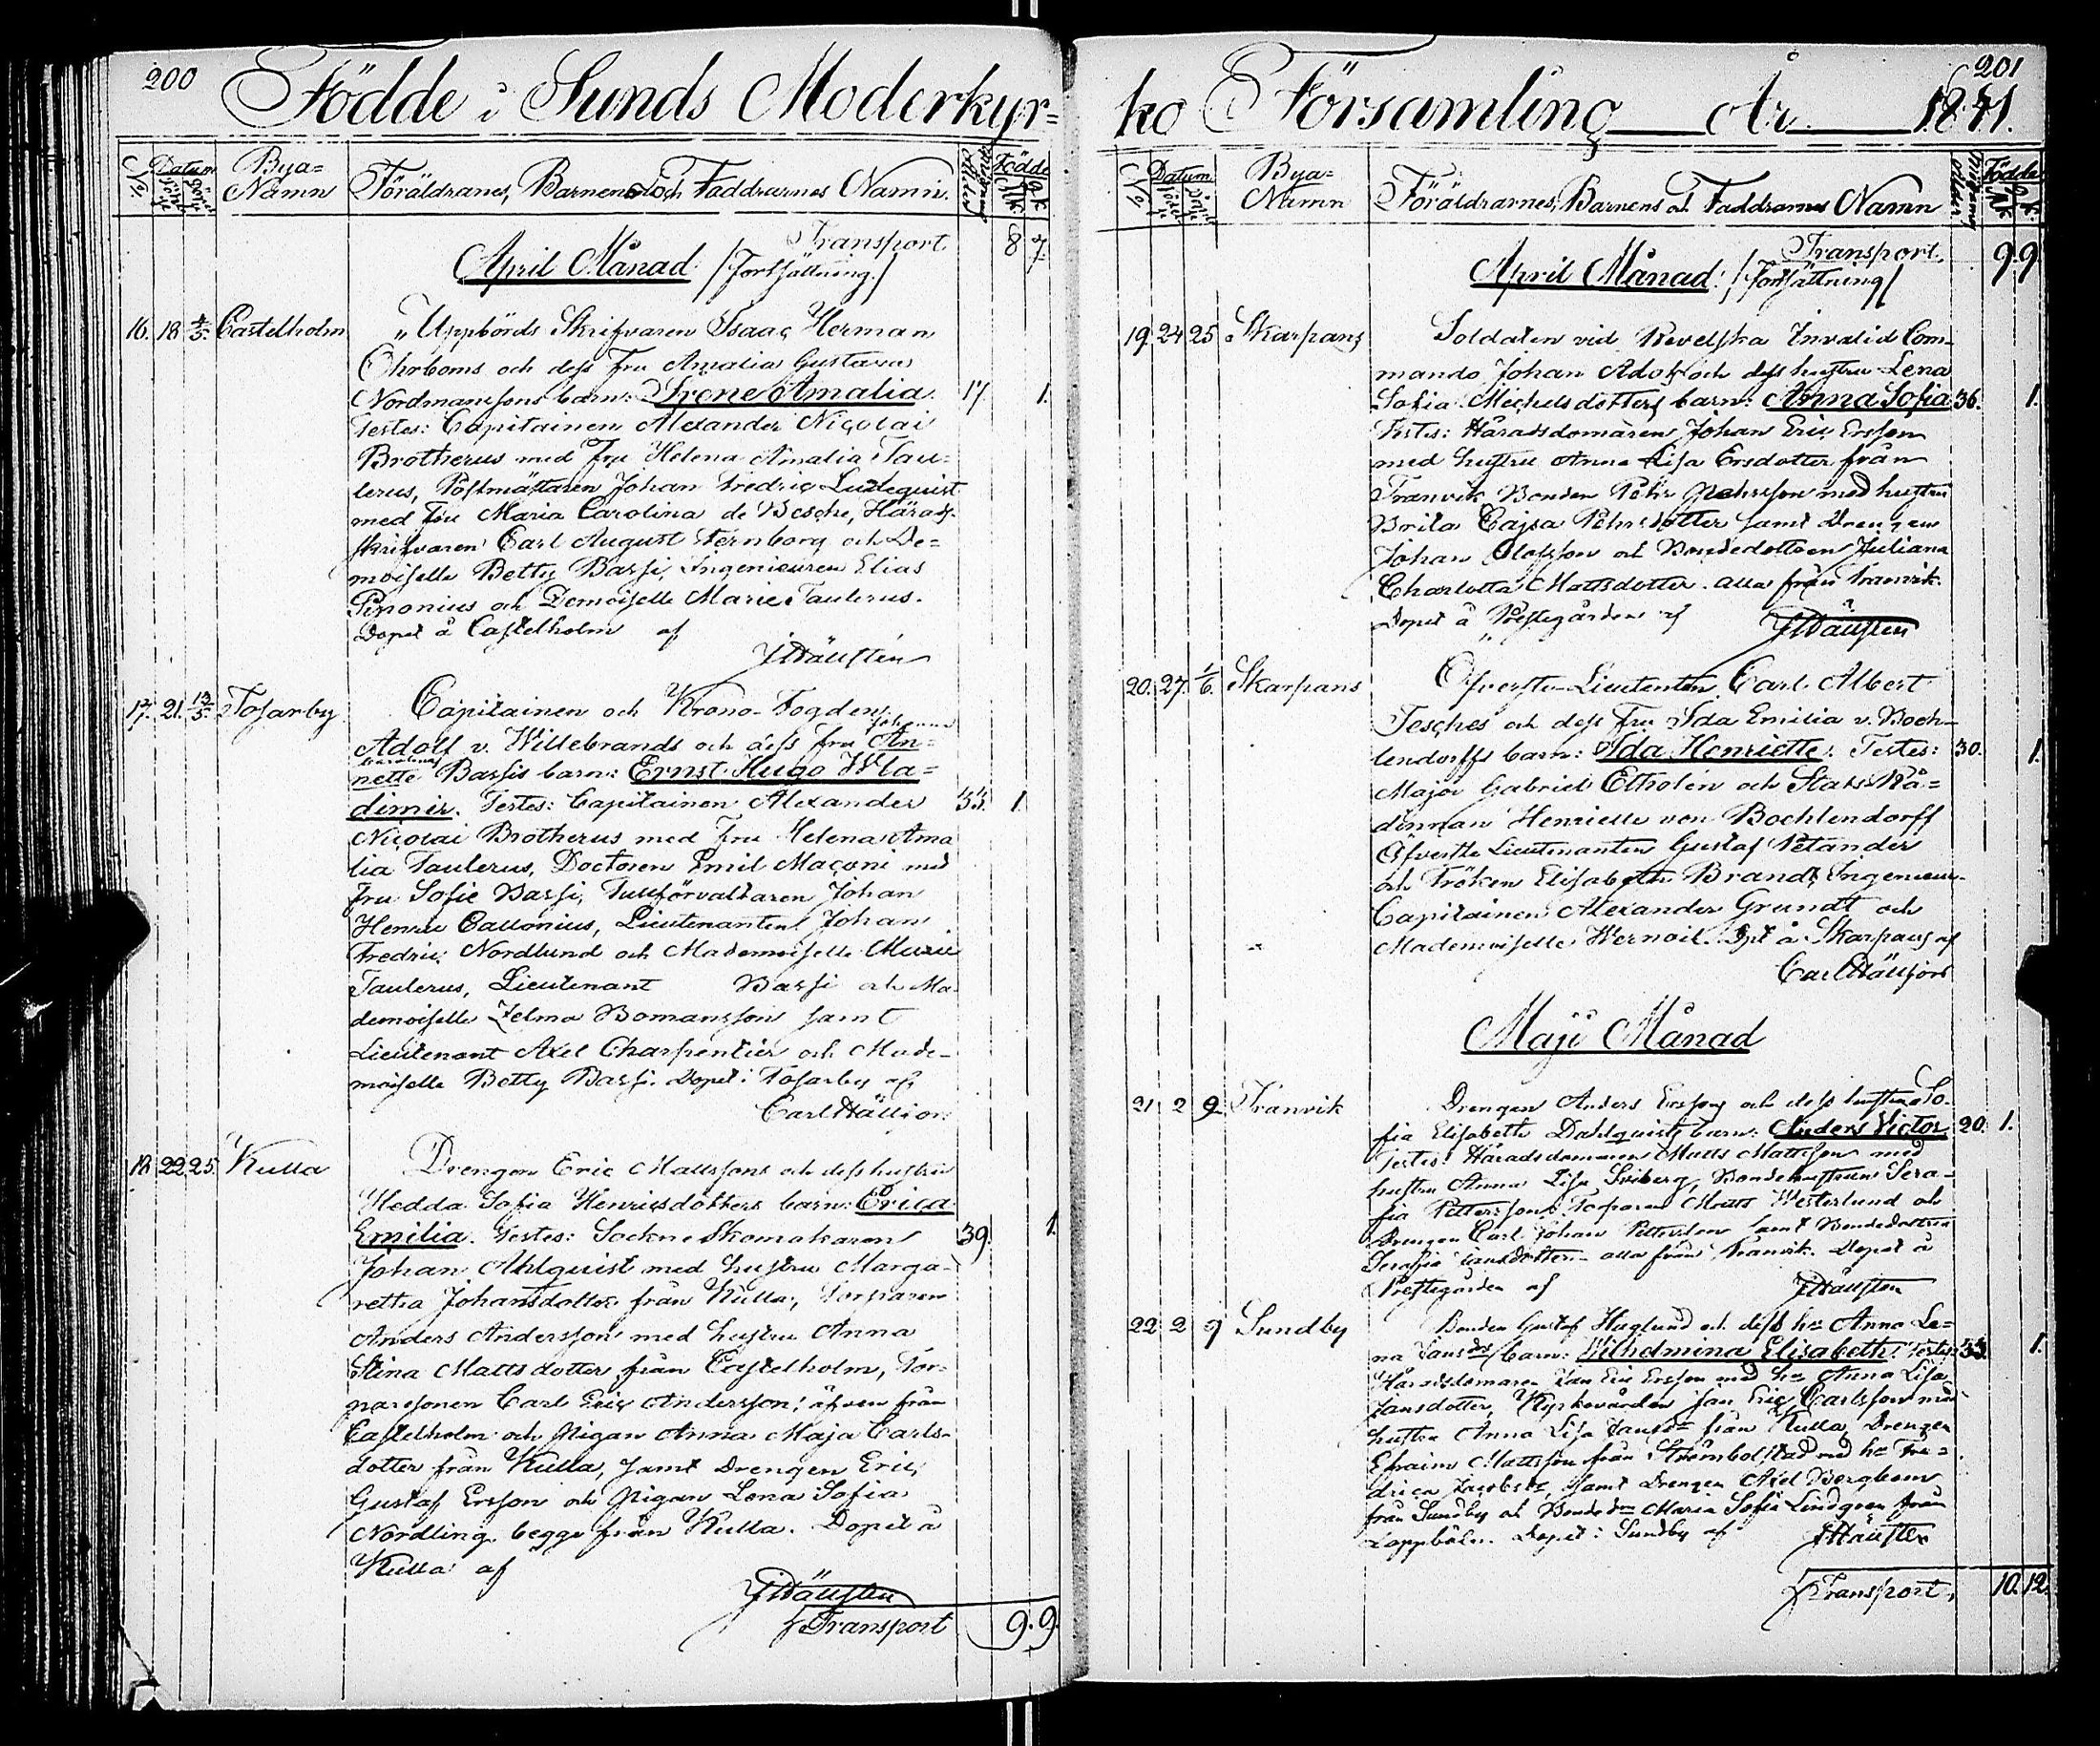 200
Födde i Sunds Moderkyr=
No.
Datum
Bya=
Namn
Föräldrarnes, Barnens och Faddrarnes Namn.
Födde
Transport 8 7.
April Månad /Fortsättning./
16. 18 4/5. Castelholm
Uppbörds Skrifvaren Isaac Herman
Öhrboms och dess Fru Amalia Gustava
Nordmanssons barn: Irene Amalia. 1.
Testes: Capitainen Alexander Nicolai
Brotherus med Fru Helena Amalia Tau=
lerus, Postmästaren Johan Fredric
med Fru Maria Carolina de Besche, Härads
skrifvaren Carl August Fernborg och De=
moiselle Betty Bassi, Ingenieuren Elias
och Demoiselle Marie Taulerus.
Döpet å Castelholm af
17. 21. 13/5. Tosarby
Capitainen och Krono-Fogden
Johanna
Adolf v. Willebrands och dess fru An=
Carolina
nette Bassis barn: Ernst Hugo Wla=
dimir. Testes: Capitainen Alexander 33. 1.
Nicolai Brotherus med Fru Helena Ama
lia Taulerus, Doctoren Emil Maconi med
Fru Sofie Bassi, Tullförvaltaren Johan
Henric Callonius, Lieutenanten Johan
Fredric Nordlund och Mademoiselle Marie
Taulerus, Lieutenant Bassi och Ma-
demoiselle Zelma Bomansson samt
Lieutenant Axel Charpentier och Made-
moiselle Betty Bassi. Döpet i Tosarby af
Carl
18. 22. 25. Kulla
Drengen Eric Mattssons och dess hustru
Hedda Sofia Henricsdotters barn: Erica
Emilia. Testes: Sockne Skomakaren 39. 1.
Johan Ahlquist med hustru Marga-
retha Johansdotter från Kulla, Torparen
Anders Andersson med hustru Anna
Stina Mattsdotter från Castelholm, Tor-
paresonen Carl Eric Andersson, äfven från
Castelholm och Pigan Anna Maja Carls-
dotter från Kulla, samt Drengen Eric
Gustaf Ersson och Pigan Lena Sofia
Nordling, begge från Kulla. Döpet å
Kulla af
Transport 9. 9.
201
ko Församling År 1841.
No.
Datum
Bya=
Namn
Föräldrarnes, Barnens och Faddrarnes Namn
Födde
Transport. 9. 9
April Månad. /Fortsättning/
19. 24 25 Skarpans
Soldaten vid Revelska Invalid Com-
mando Johan Adolf och dess hustru Lena
Sofia Michelsdotters barn: Anna Sofia 36. 1.
Testes: Häradsdomaren Johan Eric Ersson
med hustru Anna Lisa Ersdotter från
Tranvik Bonden Pehr Pehrsson med hustru
Brita Cajsa Pehrsdotter samt Drengen
Johan Olofsson och Bondedottren Juliana
Charlotta Mattsdotter alla från Tranvik.
Döpet å Prestegården af
20. 27. 1/6. Skarpans
Öfverste-Lieutenten Carl Albert
Tesches och dess Fru Ida Emilia v. Boch-
lendorffs barn: Ida Henriette. Testes: 30. 1.
Major Gabriel Etholén och Stats Rå=
dinnan Henriette von Bochlendorff
Öfverste Lieutenanten Gustaf Petander
och Fröken Elisabeth Brandt, Ingenieur-
Capitainen Alexander Grundt och
Mademoiselle Wernoil. Dpt å Skarpans af
Carl
Maji Månad
21. 2 9. Tranvik
Drengen Anders Erssons och dess hustru So-
fia Elisabeth Dahlquists barn: Anders Victor 20. 1.
Testes: Häradsdomaren Matts Mattsson med
hustru Anna Lisa Sviberg, Bondehustrun Sera-
fia Pettersson, Torparen Matts Westerlund och
Drengen Carl Johan Pettersson samt Bondedottren
Serafia Jansdotter alla från Tranvik. Döpet å
Prestegården af
22. 2 9 Sundby
Bonden Gustaf Haglund och dess hu Anna Le=
na Jansdr barn: Wilhelmina Elisabeth. Testes: 33. 1.
Häradsdomaren Jan Eric Ersson med hu Anna Lisa
Jansdotter, Kyrkovärden Jan Eric Carlsson med
hustru Anna Lisa Jansdr från Kulla, Drengen
Efraim Mattsson från Strömbolstad med hu Fre=
drica Jacobsdr, samt Drengen Axel Bergbom
från Sundby och Bondedrn Maria Sofia Lindgren från
Lappböle. Döpet i Sundby af
Transport, 10. 12.